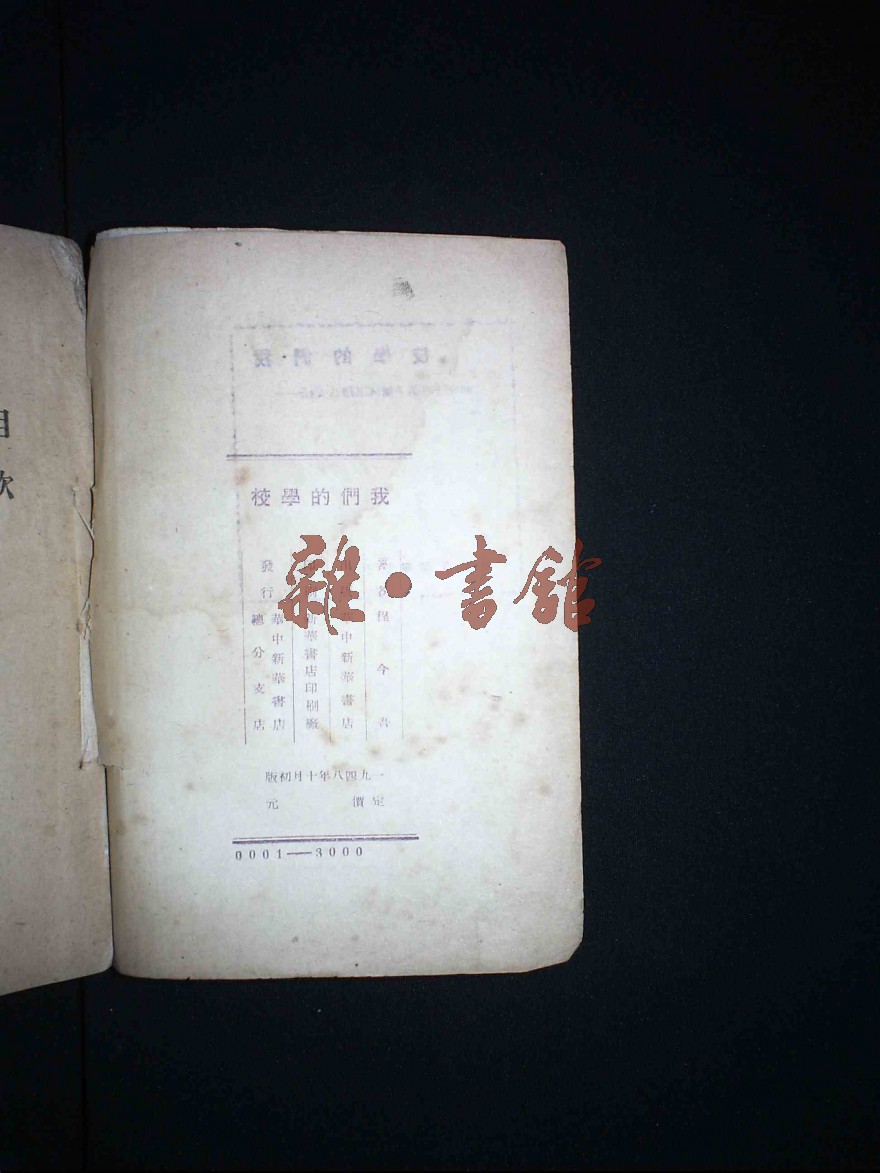 我們的學校
著者 程今吾
華中新華書店
新華書店印刷廠
發行 華中新華書店
總分支店
一九四八年十月初版
定價 元
0001—3000
雜·書館